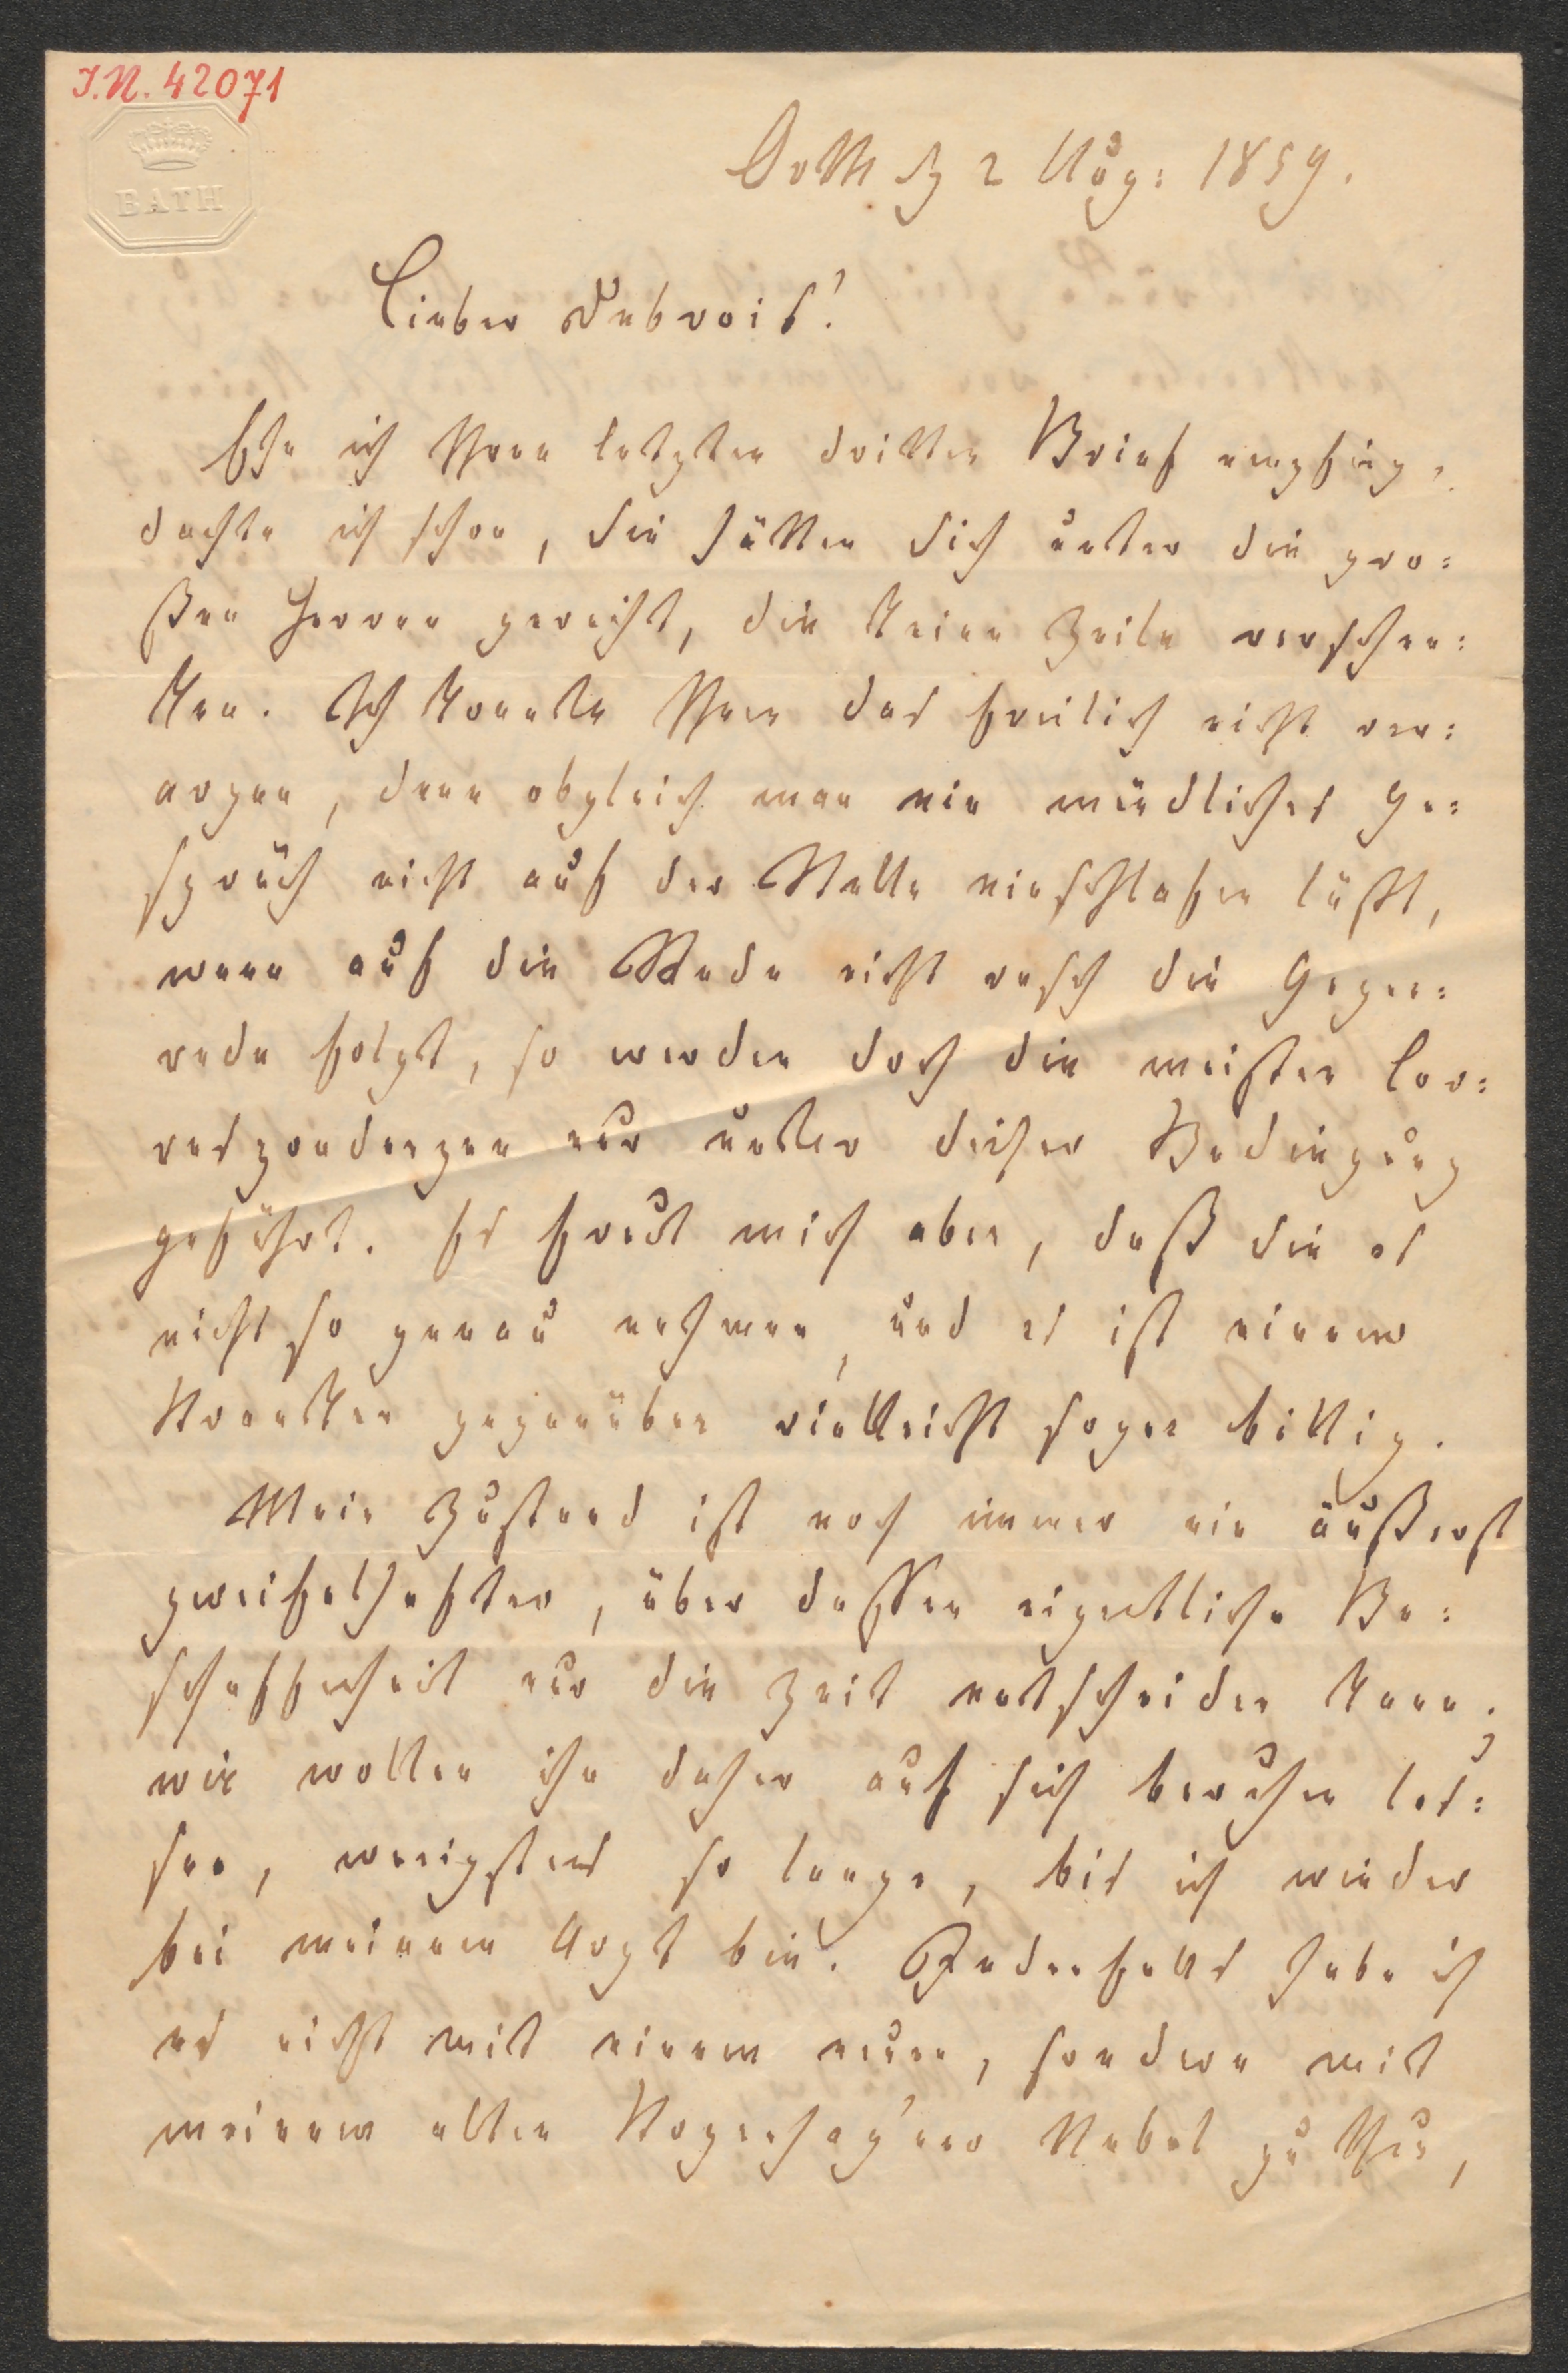 I.N. 42071
BATH
Orth d 2 Aug: 1859.
Lieber Debrois!
Ehe ich Ihren letzten dritten Brief empfing,
dachte ich schon, Sie hätten Sich unter die gro:
ßen Herren gereiht, die keine Zeile verschen:
ken. Ich konnte Ihnen das freilich nicht ver:
argen, denn obgleich man ein mündliches Ge:
spräch nicht auf der Stelle einschlafen läßt,
wenn auf die Rede nicht rasch die Gegen:
rede folgt, so werden doch die meisten Cor:
respondenzen nur unter dieser Bedingung
geführt. Es freut mich aber, daß Sie es
nicht so genau nehmen, und es ist einem
Kranken gegenüber vielleicht sogar billig.
Mein Zustand ist noch immer ein äußerst
zweifelhafter, über dessen eigentliche Be:
schaffenheit nur die Zeit entscheiden kann;
wir wollen ihn daher auf sich beruhen las:
sen, wenigstens so lange, bis ich wieder
bei meinem Arzt bin. Jedenfalls habe ich
es nicht mit einem neuen, sondern mit
meinem alten Kopenhag'ner Uebel zu thun,